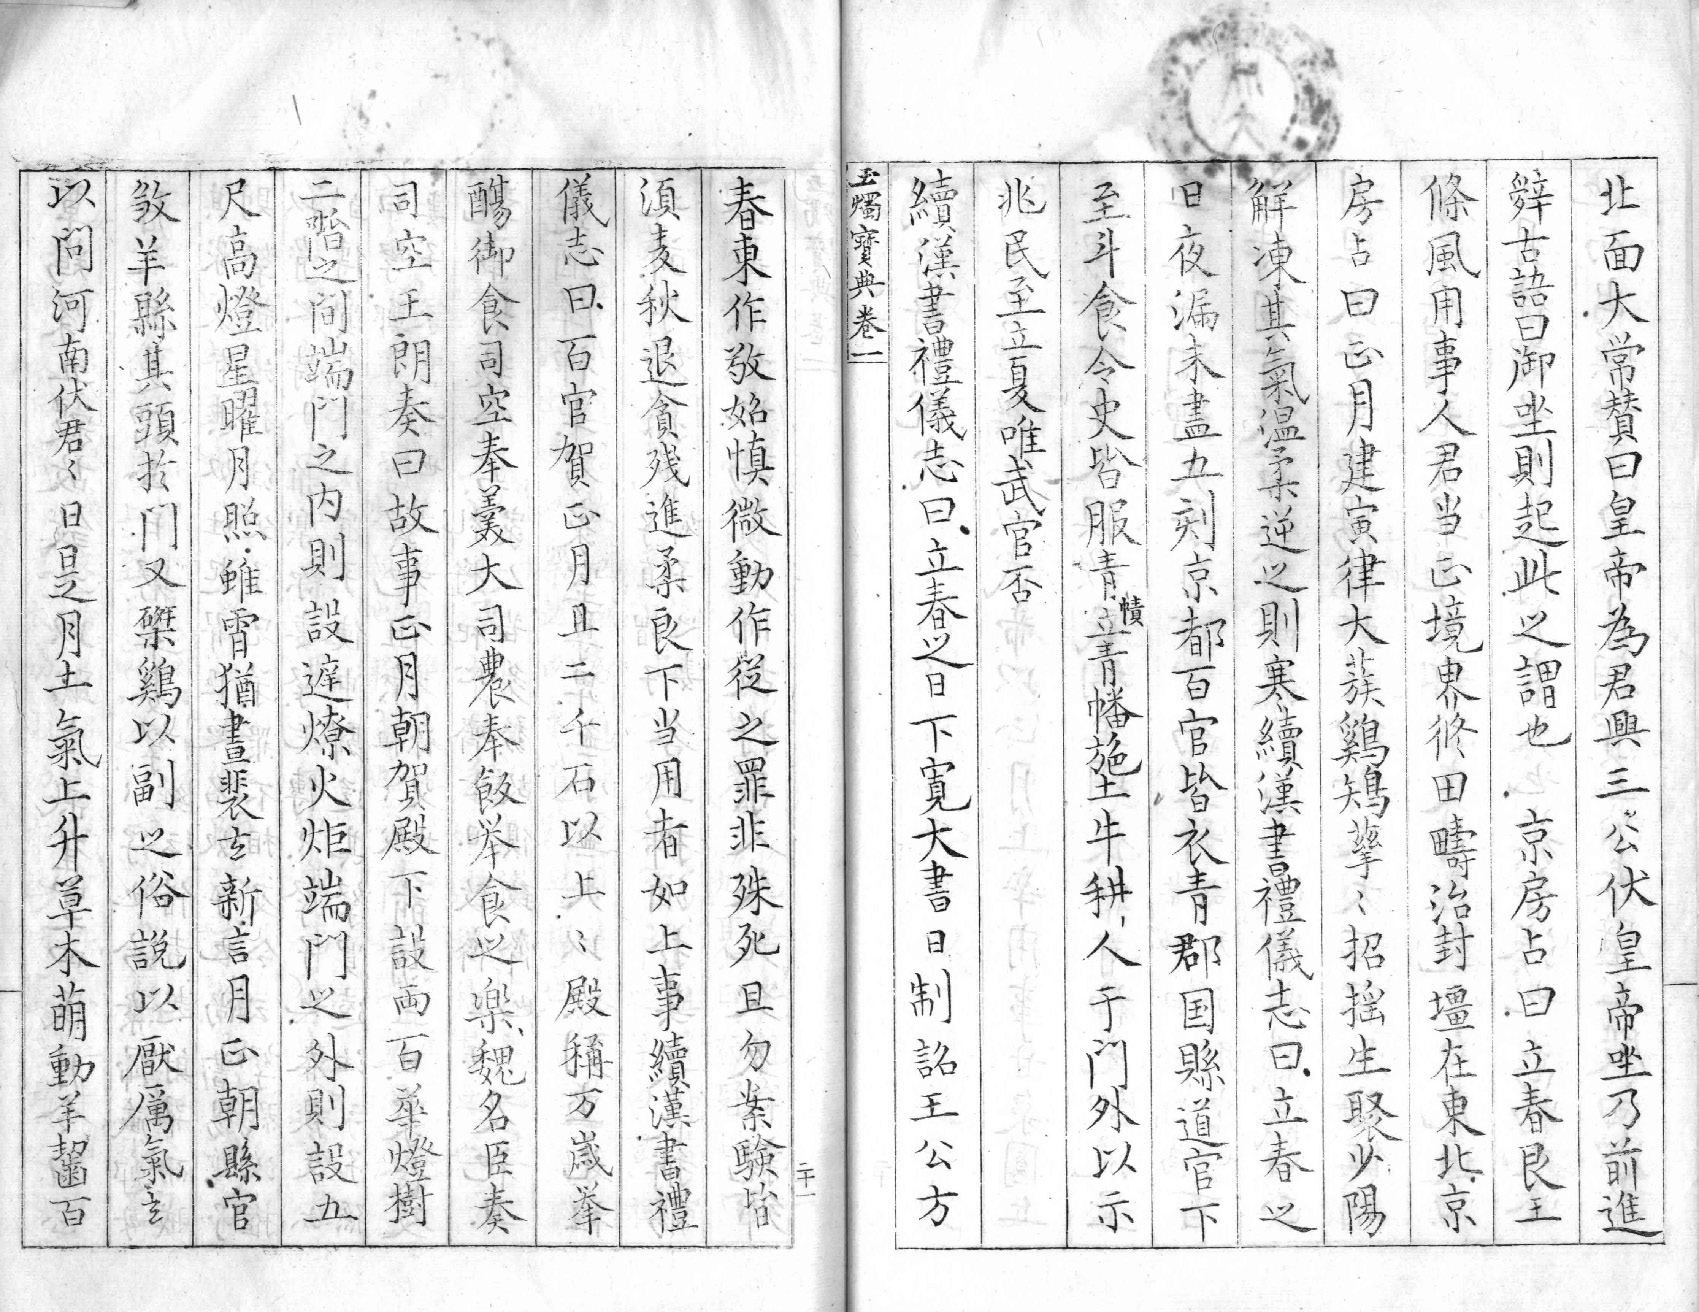 北面大常賛曰皇帝為君興三公伏皇帝坐乃前進
辤古語曰御坐則起此之謂也京房占曰立春艮王
條風用事人君当正境界修田疇治封壇在東北京
房占曰正月建寅律大蔟鷄鴙孳〻招摇生聚少陽
解凍其氣温柔逆之則寒續漢書禮儀志曰立春之
日夜漏未盡五刻京都百官皆衣青郡国縣道官下
至斗食令史皆服青幘立青幡施土牛耕人于門外以示
兆民至立夏唯武官否
續漢書禮儀志曰立春之日下寛大書曰制詔王公方
玉燭寶典卷一
二十一
春東作敬始慎微動作從之罪非殊死且勿案驗皆
須麦秋退貪残進柔良下当用者如上事續漢書禮
儀志曰百官賀正月旦二千石以上〻殿稱万歳举
醻御食司空奉羹大司農奉飯举食之楽魏名臣奏
司空王朗奏曰故事正月朝賀殿下設両百華燈樹
二階之間端門之内則設遮燎火炬端門之外則設五
尺高燈星曜月照雖霄猶晝裴玄新言月正朝縣官
敓羊縣其頭扵門又磔鷄以副之俗說以厭厲氣玄
以问河南伏君〻曰是月土氣上升草木萌動羊齧百